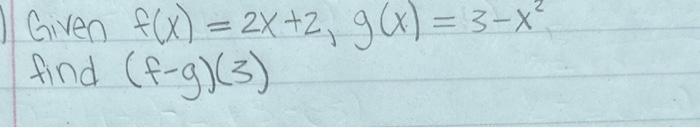 ) Given f(x) = 2x+2, g(x) = 3-x²
find (f-g)(3)